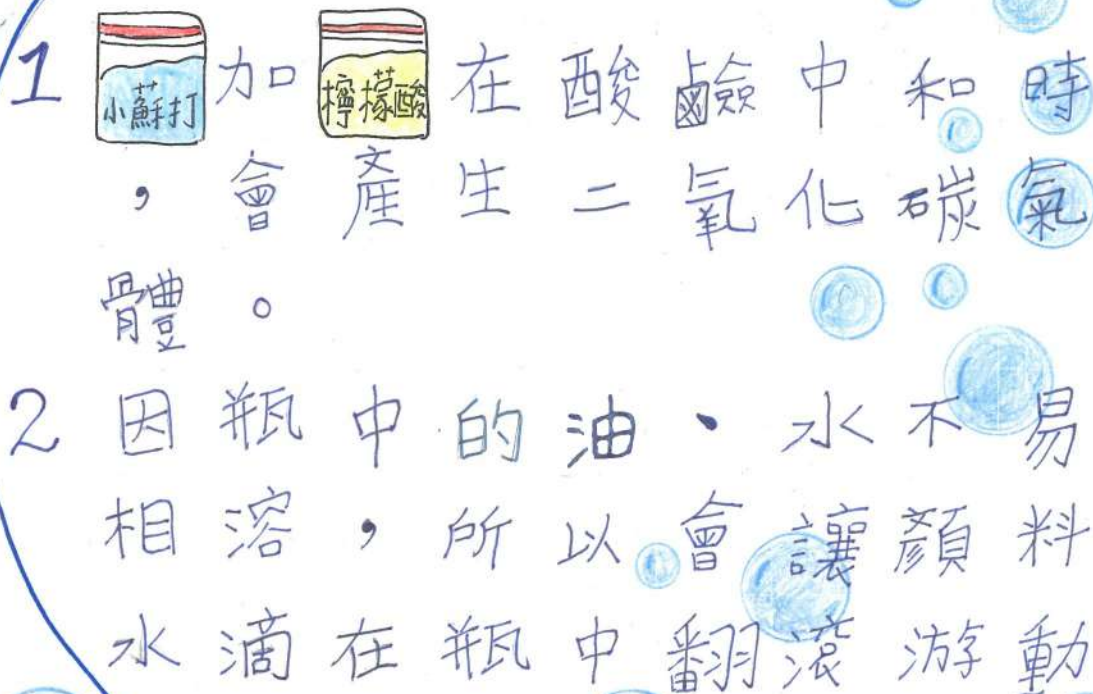 1 小蘇打加檸檬酸在酸鹼中和時
，會產生二氧化碳氣
體。
2 因瓶中的油、水不易
相溶，所以會讓顏料
水滴在瓶中翻滾游動